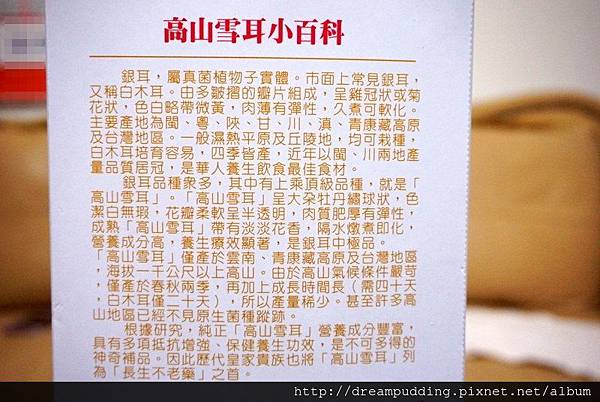 高山雪耳小百科
銀耳，屬真菌植物子實體。市面上常見銀耳，
又稱白木耳。由多皺摺的瓣片組成，呈雞冠狀或菊
花狀，色白略帶微黃，肉薄有彈性，久煮可軟化。
主要產地為閩、粵、陜、甘、川、滇、青康藏高原
及台灣地區。一般濕熱平原及丘陵地，均可栽種，
白木耳培育容易，四季皆產，近年以閩、川兩地產
量品質居冠，是華人養生飲食最佳食材。
銀耳品種衆多，其中有上乘頂級品種，就是「
高山雪耳」。「高山雪耳」呈大朵牡丹繡球狀，色
潔白無瑕，花瓣柔軟呈半透明，肉質肥厚有彈性，
成熟「高山雪耳」帶有淡淡花香，隔水燉煮即化，
營養成分高，養生療效顯著，是銀耳中極品。
「高山雪耳」僅產於雲南、青康藏高原及台灣地區
，海拔一千公尺以上高山。由於高山氣候條件嚴苛
，僅產於春秋兩季，再加上成長時間長（需四十天
，白木耳僅二十天），所以產量稀少。甚至許多高
山地區已經不見原生菌種蹤跡。
根據研究，純正「高山雪耳」營養成分豐富，
具有多項抵抗增強、保健養生功效，是不可多得的
神奇補品。因此歷代皇家貴族也將「高山雪耳」列
為「長生不老藥」之首。
http://dreampudding.pixnet.net/album